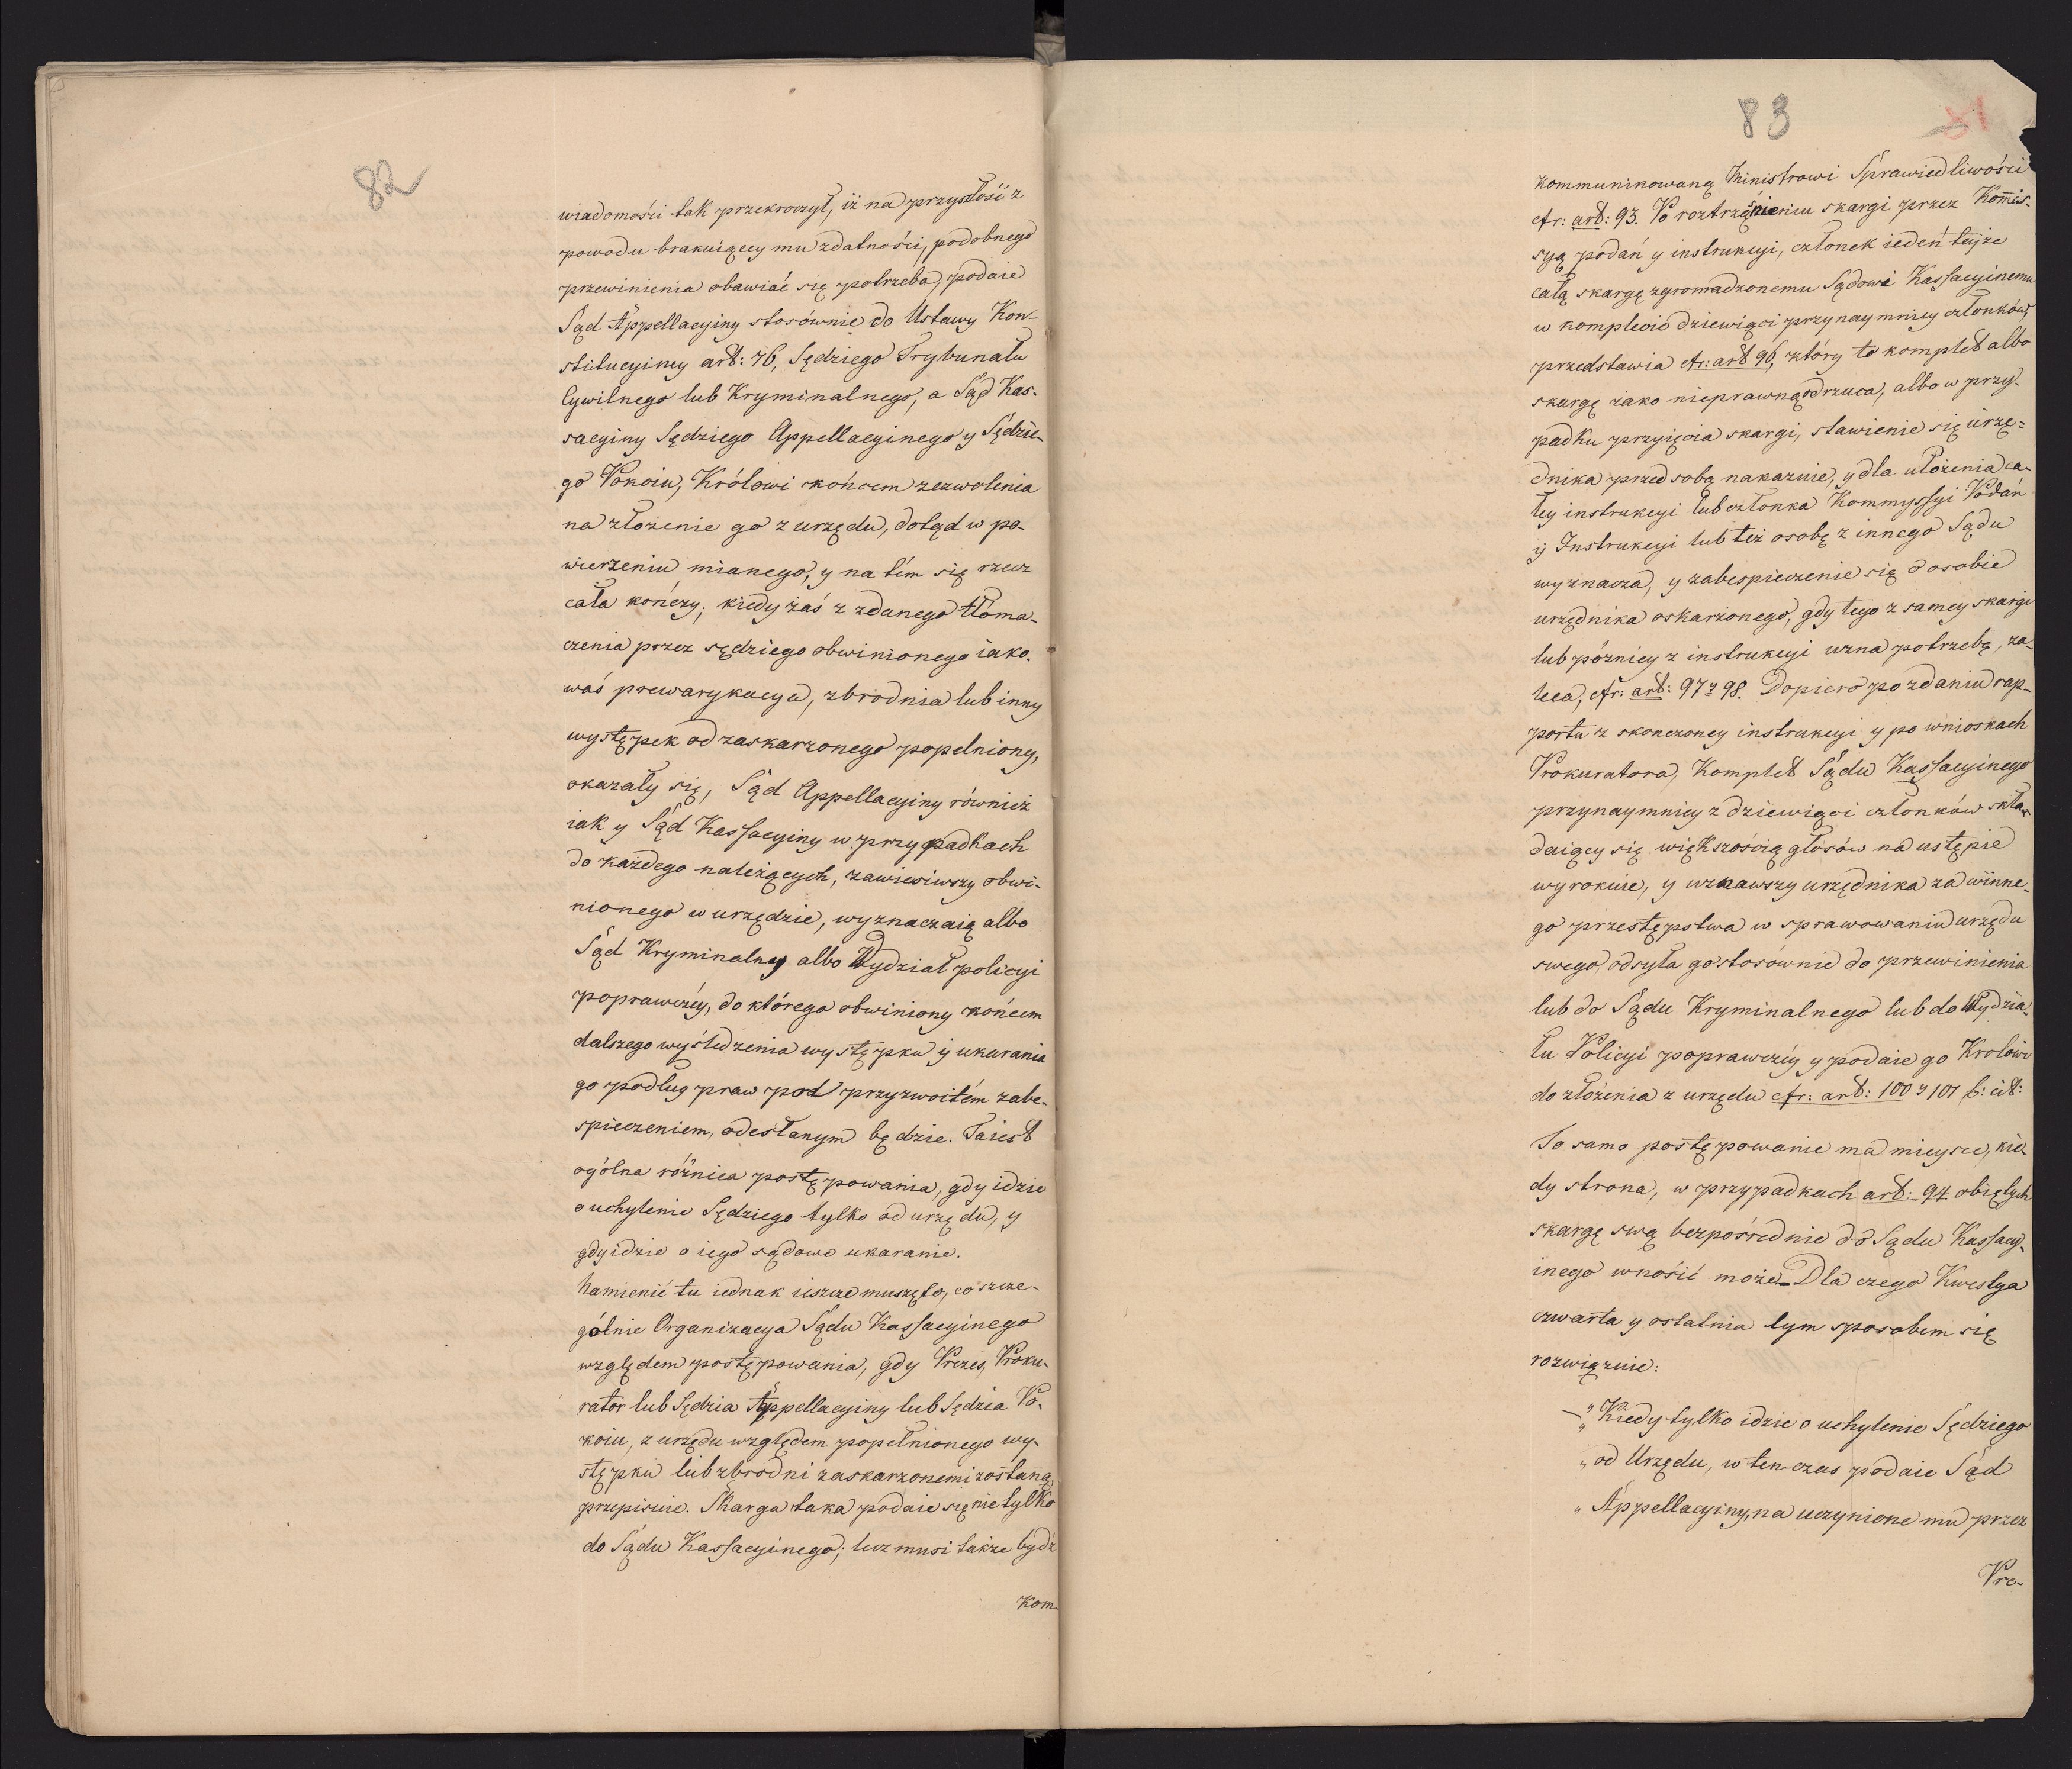 82
wiadomości tak przekroczył, iż na przyszłość z
powodu brakuiącey mu zdatności, podobnego
przewinienia obawiać się potrzeba, podaie
Sąd Appellacyiny stosównie do Ustawy Kon-
stitucyiney art: 76, Sędziego Trybunału
Cywilnego lub Kryminalnego, a Sąd Kas-
sacyiny Sędziego Appellacyinego y Sędzie-
go Pokoiu, Królowi końcem zezwolenia
na złożenie go z urzędu, dotąd w po-
wierzeniu mianego, y na tém się rzecz
cała kończy; kiedy zaś z zdanego tłóma-
czenia przez sędziego obwinionego iako-
waś prewarykacya, zbrodnia lub inny
występek od zaskarzonego popelniony,
okazały się, Sąd Appellacyiny również
iak y Sąd Kassacyiny w przypadkach
do każdego należących, zawiesiwszy obwi-
nionego w urzędzie, wyznaczaią albo
Sąd Kryminalny albo Wydział policyi
poprawczéy, do którego obwiniony końcem
dalszego wyśledzenia występku y ukarania
go podług praw pod przyzwoitém zabe-
spieczeniem, odesłanym będzie. Ta iest
ogólna różnica postępowania, gdy idzie
o uchylenie Sędziego tylko od urzędu, y
gdy idzie o iego sądowe ukaranie.
Namienić tu iednak ieszcze muszę to, co szcze-
gólnie Organizacya Sądu Kassacyinego
względem postępowania, gdy Prezes, Proku-
rator lub Sędzia Appellacyiny lub Sędzia Po-
koiu, z urzędu względem popełnionego wy-
stępku lub zbrodni zaskarzonemi zostaną,
przepisuie. Skarga taka podaie się nie tylko
do Sądu Kassacyinego; lecz musi także bydź
Kom-
83
kommuninowaną Ministrowi Sprawiedliwości
cfr: art: 93. Po roztrząśnieniu skargi przez Kom̄is-
syą podań y instrukcyi, członek ieden teyże
całą skargę zgromadzonemu Sądowi Kassacyinemu
w komplecie dziewięci przynaymniey członków,
przedstawia cfr: art 96, który to komplet albo
skargę iako nieprawną odrzuca, albo w przy-
padku przyięcia skargi, stawienie się urzę-
dnika przed sobą nakazuie, y dla ułożenia ca-
łey instrukcyi lub członka Kommyssyi Podań
y Instrukcyi lub też osobę z innego Sądu
wyznacza, y zabespieczenie się o osobie
urzędnika oskarżonego, gdy tego z samey skargi
lub pózniey z instrukcyi uzna potrzebę, za-
leca, cfr: art: 97 y 98. Dopiero po zdaniu rap-
portu z skonczoney instrukcyi y po wnioskach
Prokuratora, Komplet Sądu Kassacyinego
przynaymniey z dziewięci członków skła-
daiący się większością głosów na ustępie
wyrokuie, y uznawszy urzędnika za winne-
go przestępstwa w sprawowaniu urzędu
swego, odsyła go stosównie do przewinienia
lub do Sądu Kryminalnego lub do Wydzia-
łu Policyi poprawczéy y podaie go Krolowi
do złożenia z urzędu cfr: art: 100 y 101 l: cit:
To samo postępowanie ma mieysce, kie-
dy strona, w przypadkach art: 94 obiętych
skargę swą bezpośrednie do Sądu Kassacy-
inego wnosić może_ Dla czego Kwestya
czwarta y ostatnia tym sposobem się
rozwiązuie:
— „Kiedy tylko idzie o uchylenie Sędziego
„ od Urzędu, w ten-czas podaie Sąd
„ Appellacyiny, na uczynione mu przez
Pre-